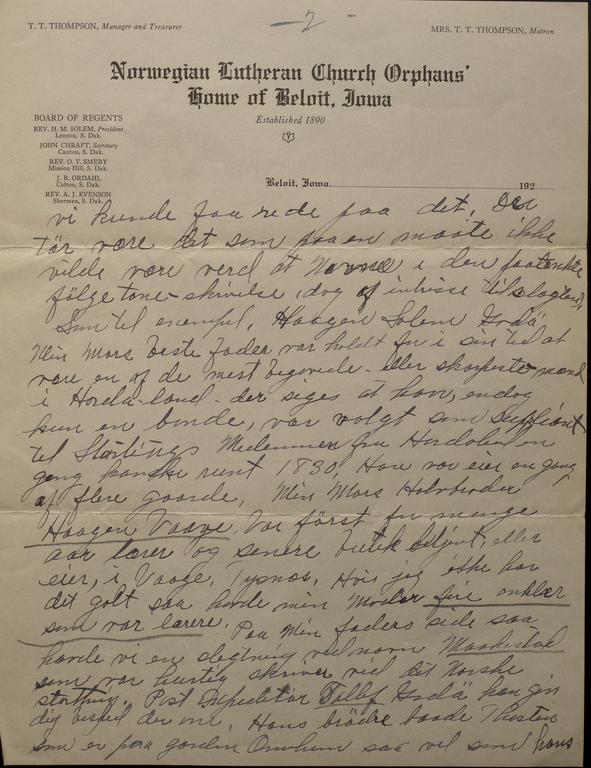 - 2 -
T. T. THOMPSON, Manager and Treasurer
MRS. T. T. THOMPSON, Matron
Norwegian Lutheran Church Orphans'
Home of Beloit, Iowa
Established 1890
BOARD OF REGENTS
REV. H. M. SOLEM, President
Lennox, S. Dak.
JOHN CHRAFT, Secretary
Canton, S. Dak.
REV. O. V. SMEBY
Mission Hill, S. Dak.
J. B. ORDAHL
Colton, S. Dak.
REV. A. J. EVENSON
Sherman, S. Dak.
Beloit, Iowa. 192
vi kunde faa rede paa det. Der
tör være det som paa en maate ikke
vilde være verd at nevne i den paatenkte
fölgetone-skrivelse, dog af intrisse til slagten,
Som til exempel, Haagen Solem Godä
Min Mors beste fader var holdt for i sin tid at
vare en af de mest begavede - eller skarpeste mænd
i Horda-land - der siges at han, endog
kun en bonde, var valgt som Suppliant
til Störtings Medlemmen fra Hordaland en
gang kanske runt 1830, Han var eier en gang
af flere gaarde, Min Mors Halvbroder
Haagen Vaage, Var först for mange
aar lærer og senere butik betjent, eller
eier, i Vaage, Tysnæs, Hvis jeg ikke har
det galt saa havde min Moder fire onkler
som var lærere. Paa Min faders side saa
havde vi en slegtning ved navn Maakestad
som var hurtig skriver ved det Norske
storthing. Post Expeditör Tellef Godä kan gi
dig besked der om. Hans brödre baade Thorsten
som er paa gaarden Onarheim saa vel som hans